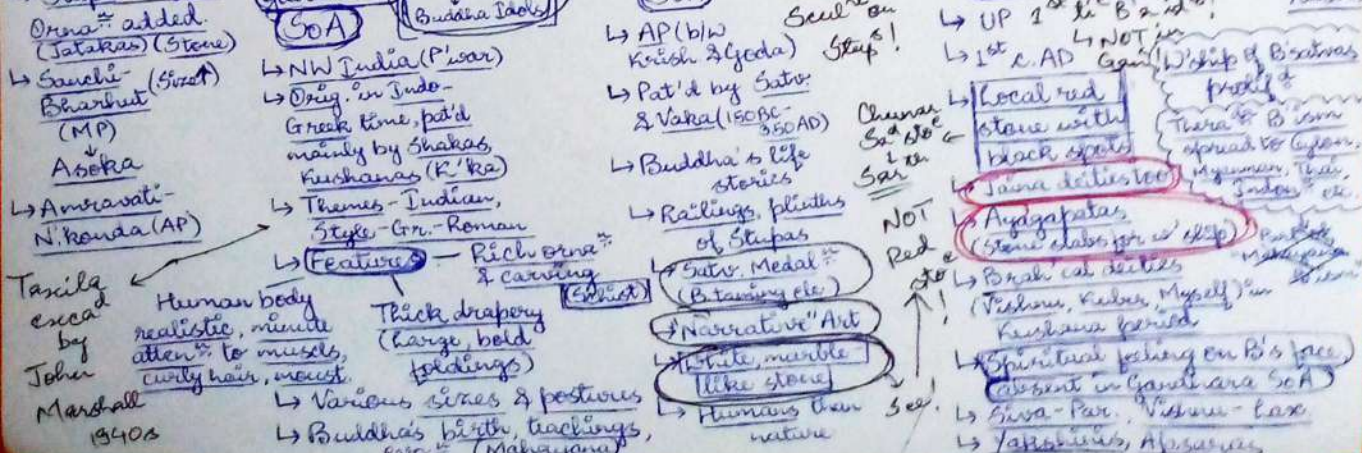 Ornaⁿ added.
(Jatakas) (Stone)
↳ Sanchi- (Size↑)
Bharhut
(MP)
↓
Asoka
↳ Amravati-
N.konda (AP)
Taxila
excaᵈ
by
John
Marshall
1940s
Buddha Idols
SoA
↳ NW India (P'war)
↳ Orig. in Indo-
Greek time, pat'd
mainly by Shakas,
Kushanas (K'ka)
↳ Themes - Indian,
Style - Gr.-Roman
↳ Features — Rich ornaⁿ
& carving
(Schist)
Human body
realistic, minute
attenⁿ to muscls,
curly hair, moust.
Thick drapery
(Large, bold
foldings)
↳ Various sizes & postures
↳ Buddha's birth, teachings,
(Mahayana)
↳ AP (b/w
Krish & Goda)
↳ Pat'd by Satv.
& Vaka (150BC-
350AD)
↳ Buddha's life
stories
↳ Railings, plinths
of Stupas
↳ Satv. Medalⁿ
(B. taming ele.)
↳ "Narrative" Art
↳ White, marble
like stone
↳ Humans than
nature
on
Stupˢ!
Chunar
Saᵈ stoᵉ
↓
Sarᵗʰ
NOT
Red
stoᵉ
!
See!
↳ UP 1ˢᵗ
↳ NOT in
Gan!
↳ 1ˢᵗ c. AD
↳ Local red
stone with
black spots
↳ Jaina deities too
↳ Ayagapatas
(Stone slabs for w'ship)
↳ Brah'cal deities
(Vishnu, Kuber, Myself) in
Kushana period
↳ Spiritual feeling on B's face
(absent in Gandhara SoA)
↳ Siva-Par. Vishnu-Lax
↳ Yakshinis, Apsaras
W'ship of B'satvas
Theraⁿ B'ism
spread to Ceylon,
Myanmar, Thai,
Indosⁿ etc.
"Mahayana